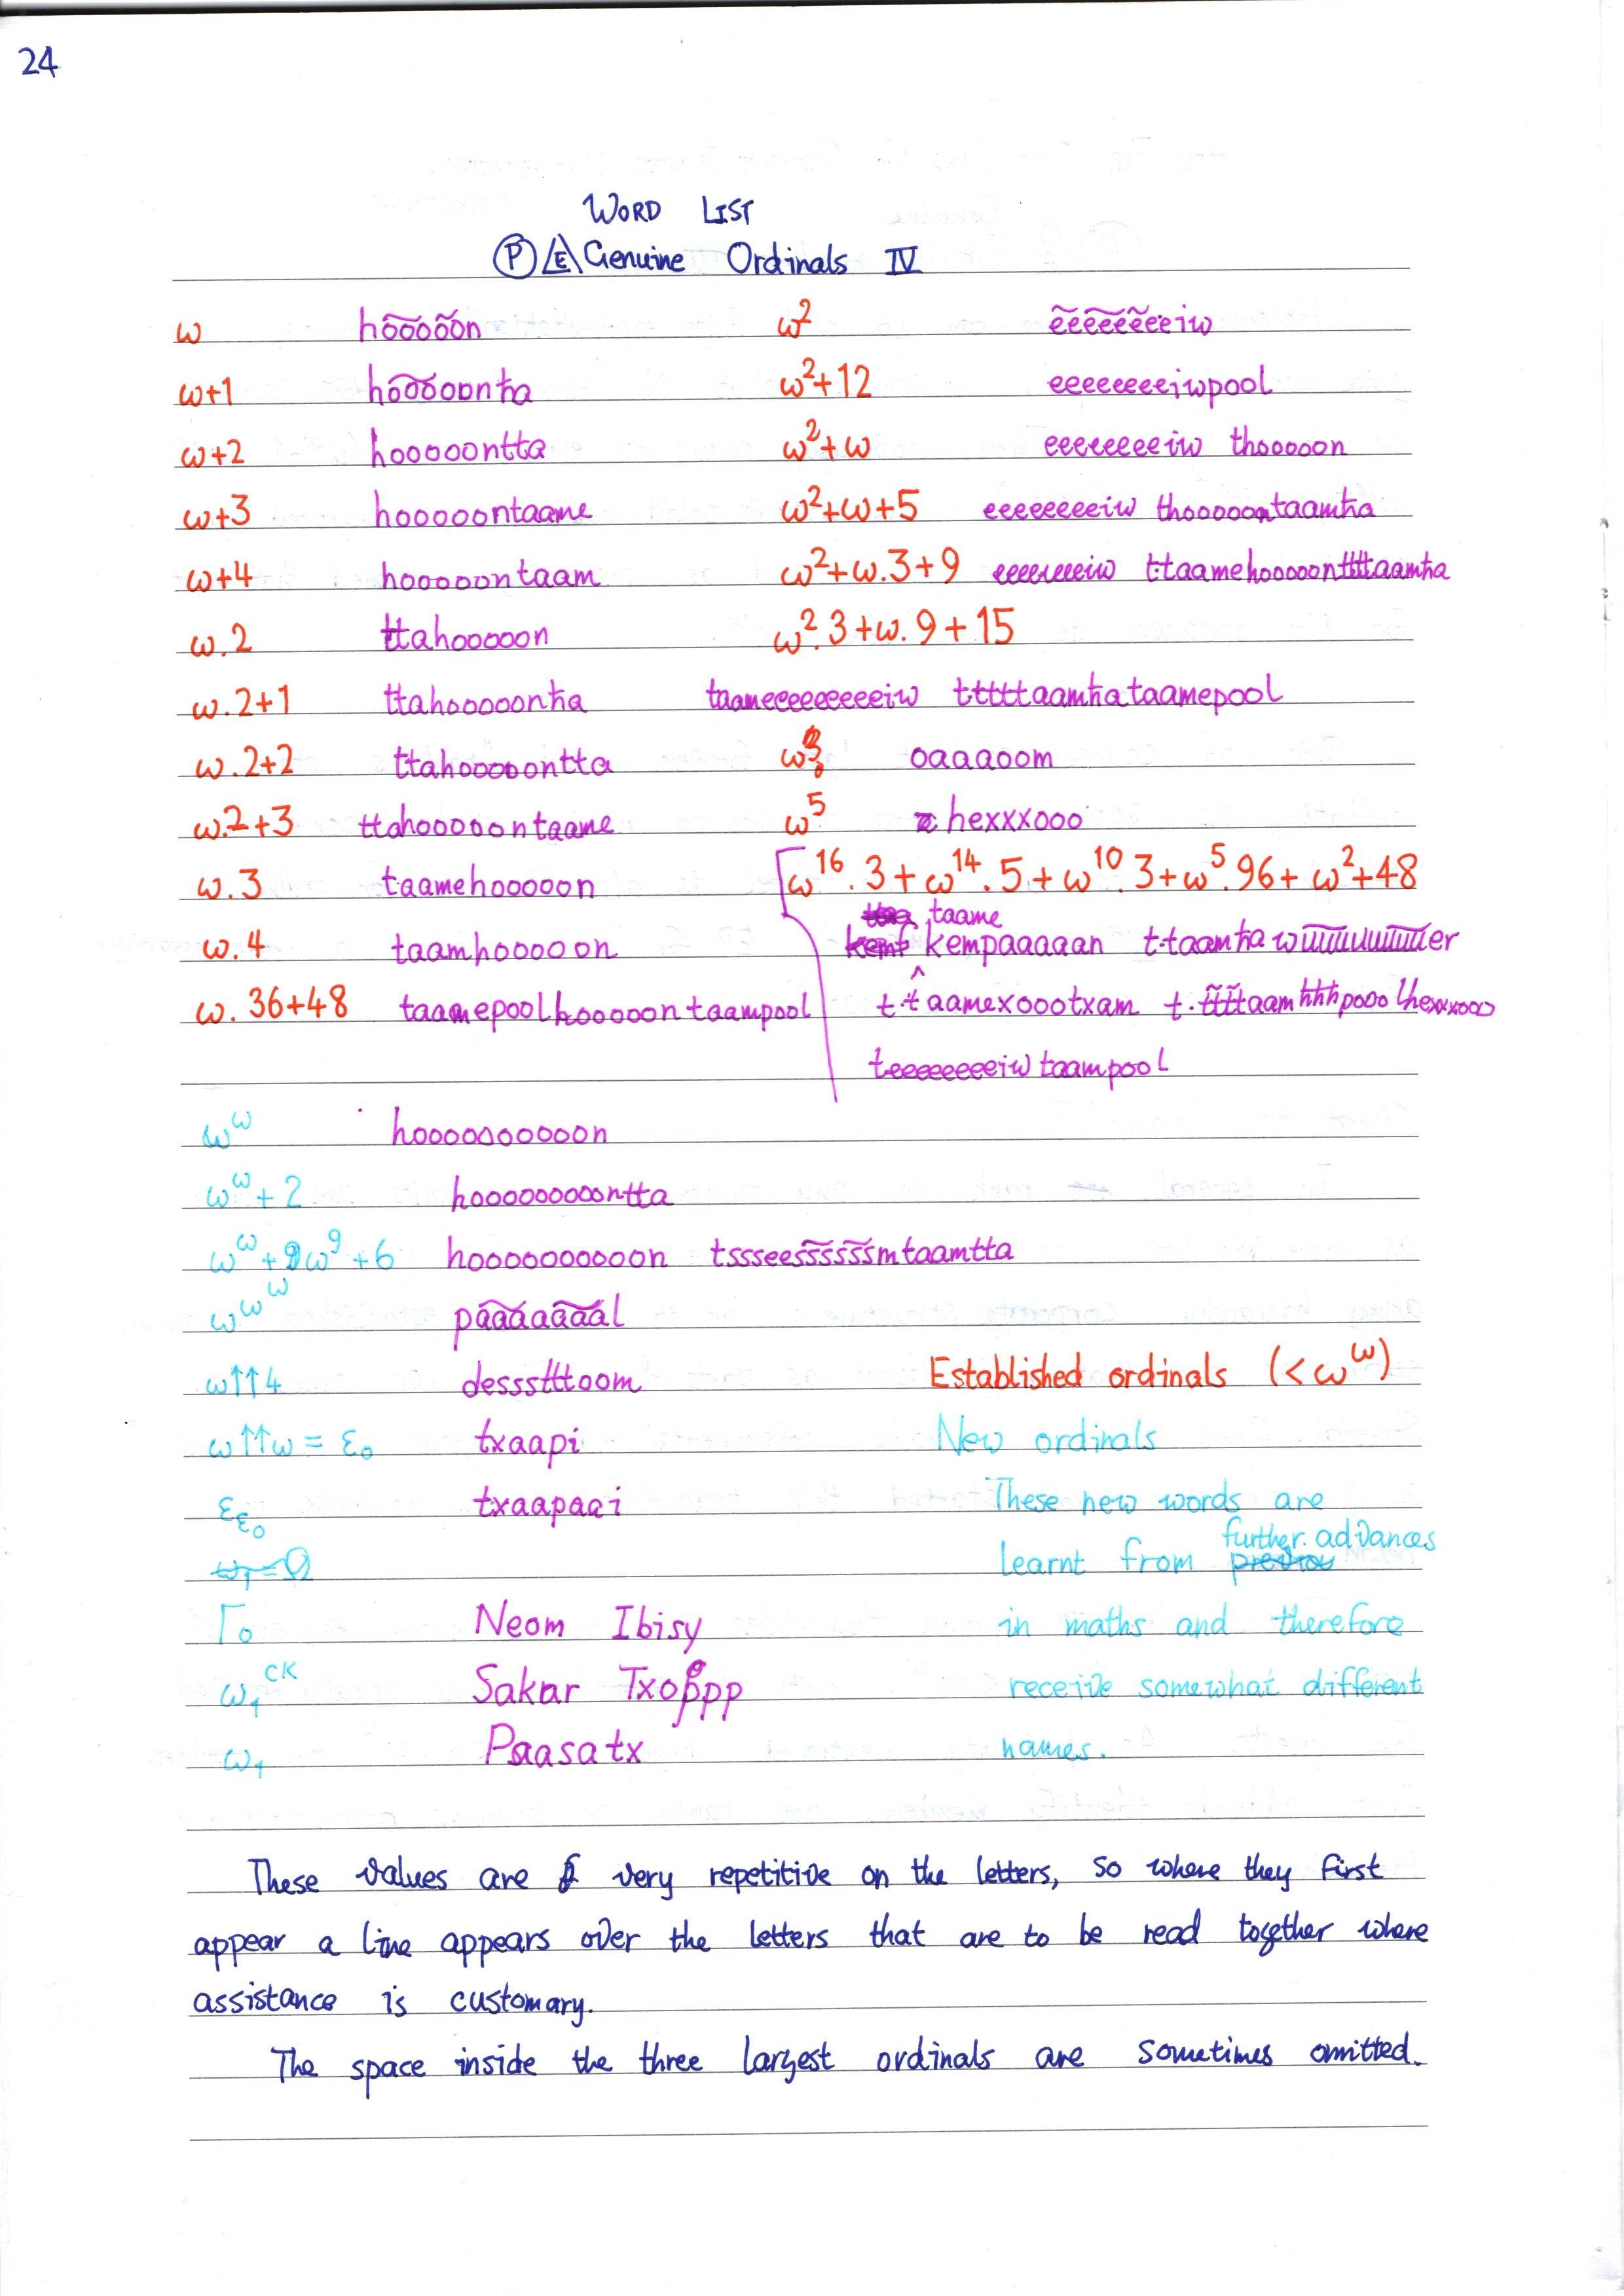 24
WORD LIST
Ⓟ E Genuine Ordinals IV
ω hooooon ω² eeeeeeeeiw
ω+1 hooooonħa ω²+12 eeeeeeeeiwpool
ω+2 hooooontta ω²+ω eeeeeeeeiw thooooon
ω+3 hooooontaame ω²+ω+5 eeeeeeeeiw thooooontaamħa
ω+4 hooooontaam ω²+ω.3+9 eeeeeeeeiw t·taamehooooontttaamħa
ω.2 ttahooooon ω².3+ω.9+15
ω.2+1 ttahooooonħa taameeeeeeeeeiw tttttaamħataamepool
ω.2+2 ttahooooontta ω³ oaaaoom
ω.2+3 ttahooooontaame ω⁵ hexxxooo
ω.3 taamehooooon ω¹⁶.3+ω¹⁴.5+ω¹⁰.3+ω⁵.96+ω²+48
taame
ω.4 taamhooooon kempaaaaan t·taamħawuuuuuuuuer
ω.36+48 taamepoolhooooontaampool t·taamexoootxam t·ttttaamħħħpooolhexxxooo
teeeeeeeeiwtaampool
ω^ω hoooooooooon
ω^ω+2 hoooooooooontta
ω^ω+ω⁹+6 hoooooooooon tssseessssssmtaamtta
ω^ω^ω paaaaaaal
ω↑↑4 dessstttoom Established ordinals (<ω^ω)
ω↑↑ω = ε₀ txaapi New ordinals
ε_ε₀ txaapaai These new words are
further advances
ω₁=Ω learnt from
Γ₀ Neom Ibisy in maths and therefore
ω₁^CK Sakar Txoppp receive somewhat different
ω₁ Paasatx names.
These values are very repetitive on the letters, so where they first
appear a line appears over the letters that are to be read together where
assistance is customary.
The space inside the three largest ordinals are sometimes omitted.